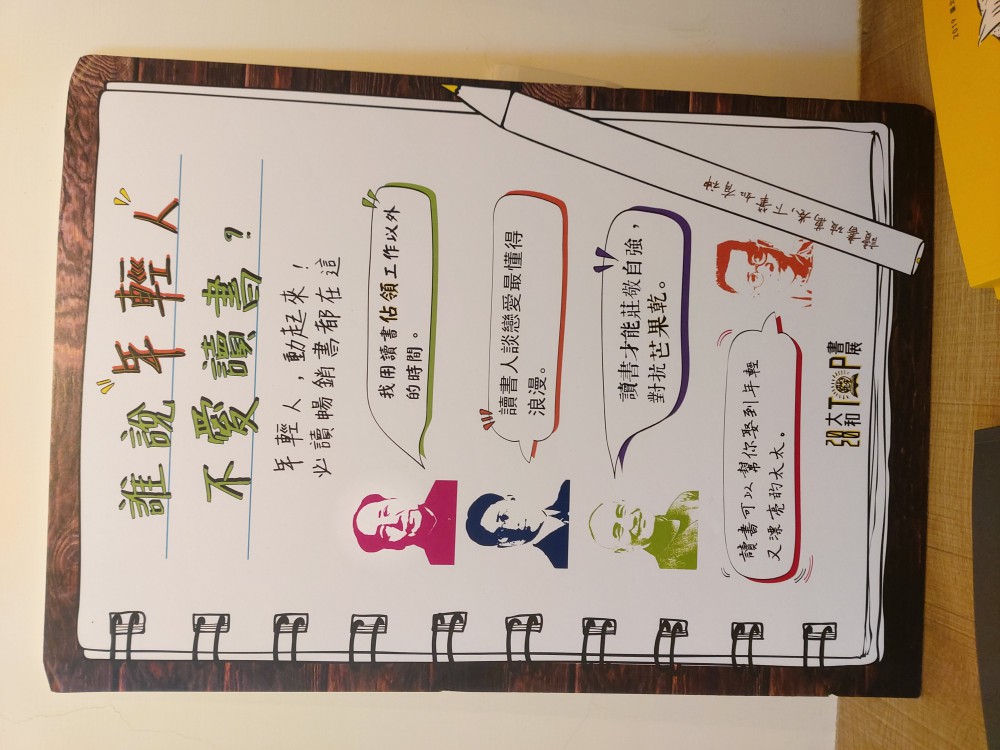 誰說年輕人
不愛讀書?
年輕人,動起來!
必讀暢銷書都在這
我用讀書佔領工作以外
的時間。
讀書人談戀愛最懂得
浪漫。
讀書才能莊敬自強,
對抗芒果乾。
讀書可以幫你娶到年輕
又漂亮的太太。
讀書破萬卷,下筆如有神
2020大和TOP書展
2019